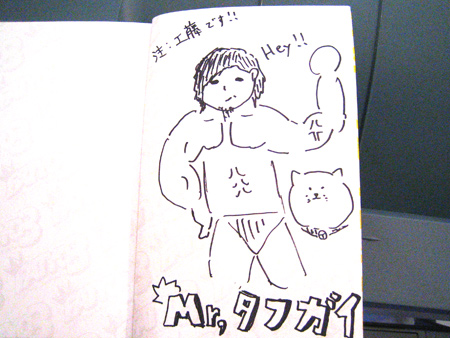 注:工藤です!!
Hey!!
Mr,タフガイ